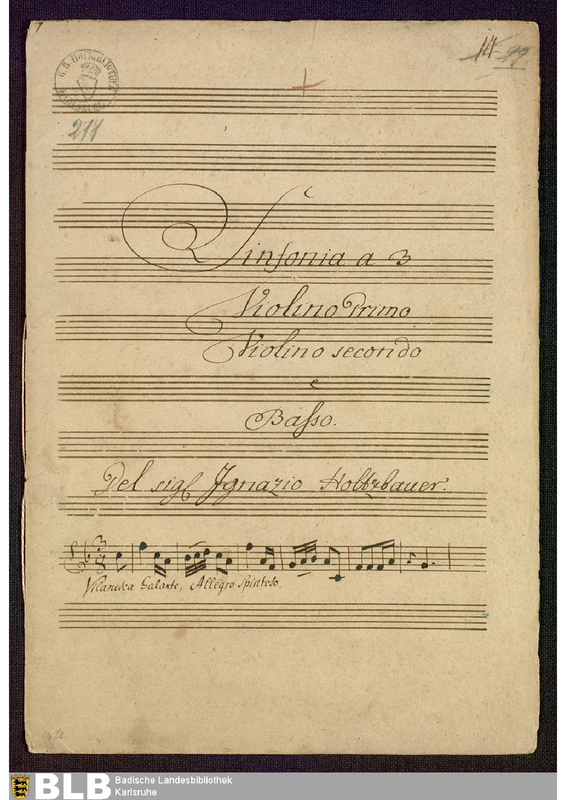 14
99
G. B. Hofbibliothek
211
Sinfonia a 3
Violino Primo
Violino secondo
e
Basso.
Del sigl Ignazio Holtzbauer.
3
8
Vilanesca Galante, Allegro Spiritoso.
BLB
Badische Landesbibliothek
Karlsruhe